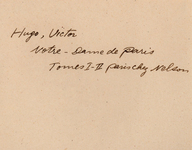 Hugo, Victor
Notre-Dame de Paris
Tomes I-II Paris chez Nelson